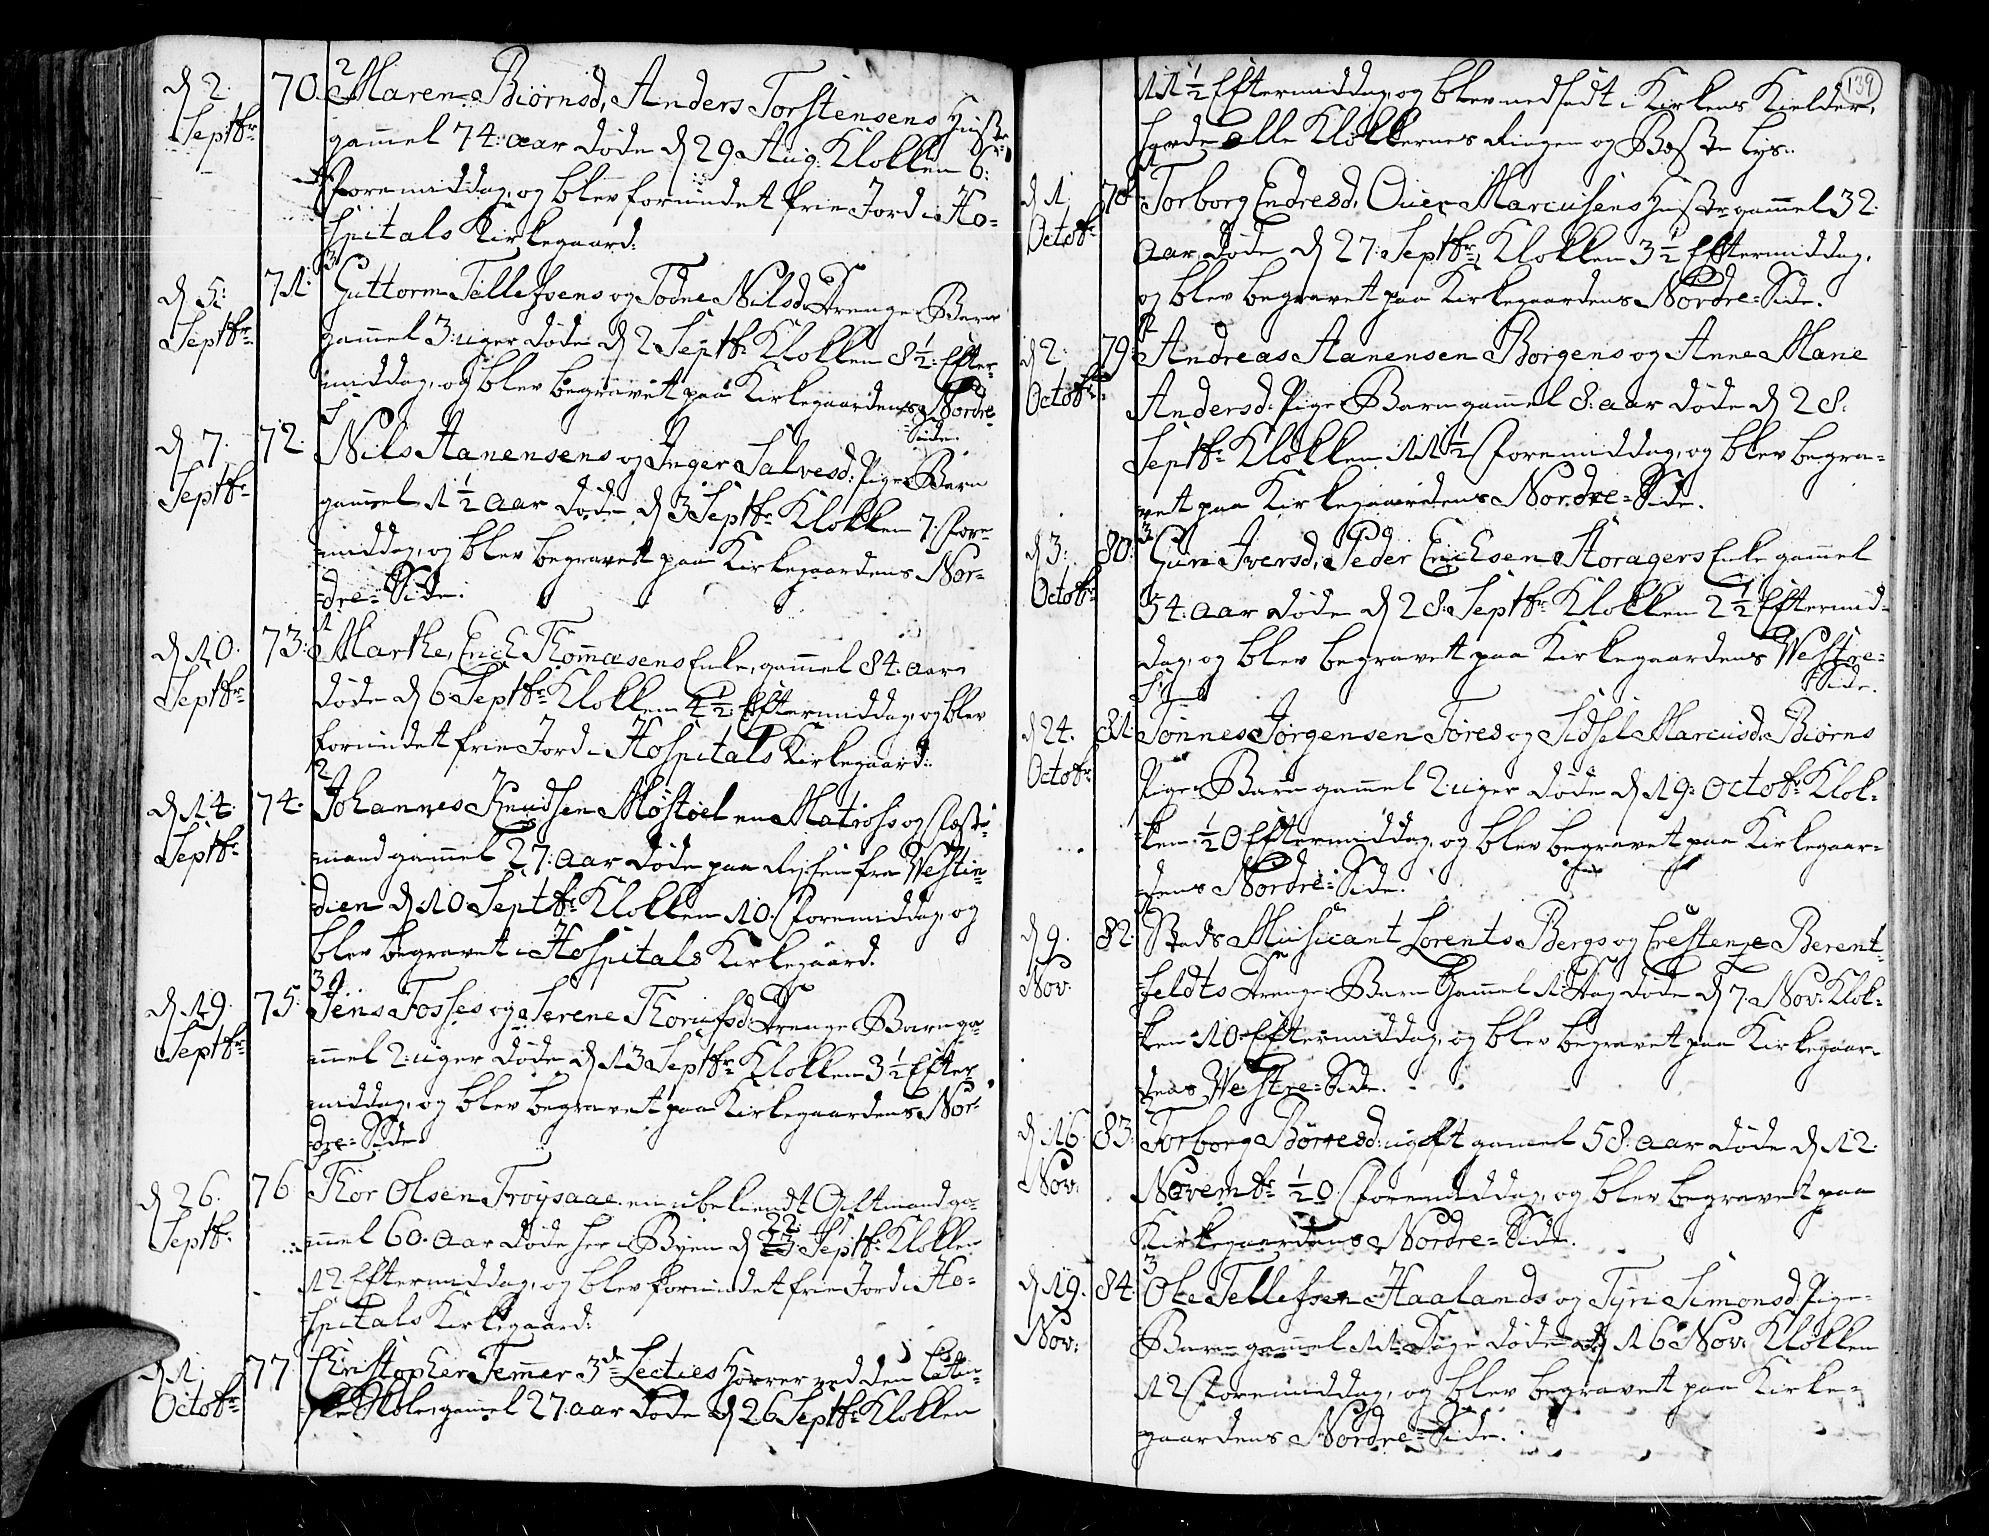 d 2. 70. 2 Maren Biörnsd, Anders Torstensens Hustr.
Septbr gammel 74: aar døde d 29. Aug: Klokken 6:
Formiddag, og blev forundet frie Jord i Ho-
spitals Kirkegaard.
d 5: 71: 3 Guttorm Tellefsens og Todne Nilsd. Drenge Barn
Septbr gammel 3: uger døde d 2 Septbr Klokken 8½: Efter-
middag, og blev begravet paa Kirkegaardens Nordre-
Side.
d 7. 72. Nils Aanensens og Inger Salvesd: Pige Barn
Septbr gammel 1½ aar døde d 3 Septbr Klokken 7: For-
middag, og blev begravet paa Kirkegaardens Nor-
dre-Side.
d 10. 73. 1 Marthe, Erich Thommasens Enke, gammel 84. aar
Septbr døde d 6 Septbr Klokken 4½: Eftermiddag, og blev
forundet frie Jord i Hospitals Kirkegaard.
d 14. 74. 2 Johannes Knudsen Møstoel en Matross og Fæste-
Septbr mand gammel 27: aar døde paa Reisen fra Westin-
dien d 10 Septbr Klokken 10. Formiddag, og
blev begravet i Hospitals Kirkegaard.
d 19. 75. 3 Jens Fosses og Serene Thorufsd: Drenge Barn ga-
Septbr mmel 2: uger døde d 13 Septbr Klokken 3½ Efter
middag, og blev begravet paa Kirkegaardens Nor-
dre-Side
d 26. 76 Thor Olsen Trøysaae en ubekiendt Giftmand ga-
Septb. mmel 60. aar døde her i Byen d 22: Septbr Klokken
12 Eftermiddag, og blev forundet frie Jord i Ho-
spitals Kirkegaard.
d 1. 77 Christopher Temmer 3de Lecties Hörrer ved den Latin-
Octobr ske Skole, gamel 27: aar døde d 26 Septbr Klokken
139
11½ Eftermiddag, og blev nedsadt i Kirkens Kielder,
havde alle Klokkernes Ringen og Lys.
d 1. 78 Torborg Endresd, Ouer Marcusens Hustr gammel 32:
Octobr aar, døde d 27: Septbr, Klokken 3½ Eftermiddag,
og blev begravet paa Kirkegaardens Nordre-Side.
d 2. 79. Andreas Aanensen Borgens og Anne Marie
Octobr Andersd: Pige Barn gammel 8: aar døde d 28:
Septbr Klokken 11½ Formiddag, og blev begra-
vet paa Kirkegaardens Nordre-Side.
d 3. 80. 3 Guri Iversd, Peder Erichsen Storagers Enke gammel
Octobr 54: aar døde d 28. Septbr Klokken 2½ Eftermid-
dag, og blev begravet paa Kirkegaardens Westre-
Side.
d 24. 81. Tönnes Jørgensen Tores og Sidsel Marcusd. Biörns
Octobr Pige Barn gammel 2: uger døde d 19: Octobr Klok-
ken ½0 Eftermiddag, og blev begravet paa Kirkegaar-
dens Nordre-Side.
d 9. 82. Stads Musicant Lorents Bergs og Crestense Berent-
Nov. feldts Drenge Barn Gammel 1 Dag døde d 7. Nov: Klok-
ken 10 Eftermiddag, og blev begravet paa Kirkegaar-
dens Westre-Side.
d 16. 83. Torborg Börresd: ugift gammel 58: aar døde d 12:
Nov: Novembr ½0. Formiddag, og blev begravet paa
Kirkegaardens Nordre-Side.
d 19. 84. 3 Ole Tellefsen Haalands og Tyri Simonsd: Pige-
Nov: Barn gammel 11 Dage døde d 16 Nov. Klokken
12 Formiddag, og blev begravet paa Kirke-
gaardens Nordre-Side.